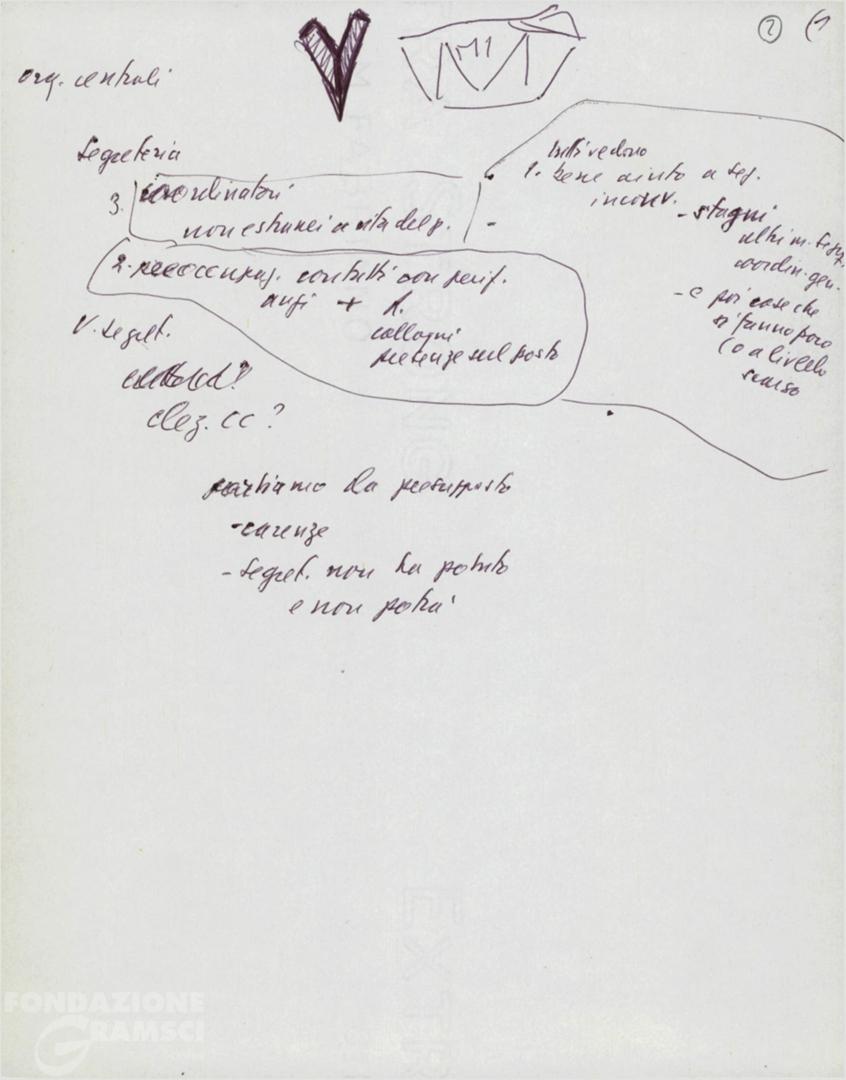 ② (1
M1
org. centrali
Segreteria
3. coordinatori
non estranei a vita del p.
2. preoccupaz. contatti con perif.
anzi +
colloqui
presenze sul posto
V. segret.
elez. CC?
tutti vedono
1. bene aiuto a seg.
inconv.
- stagni
altri m. segr.
coordin. gen.
- e poi cose che
si fanno poco
(o a livello
scarso
-
partiamo da presupposto
- carenze
- Segret. non ha potuto
e non potrà
FONDAZIONE
GRAMSCI